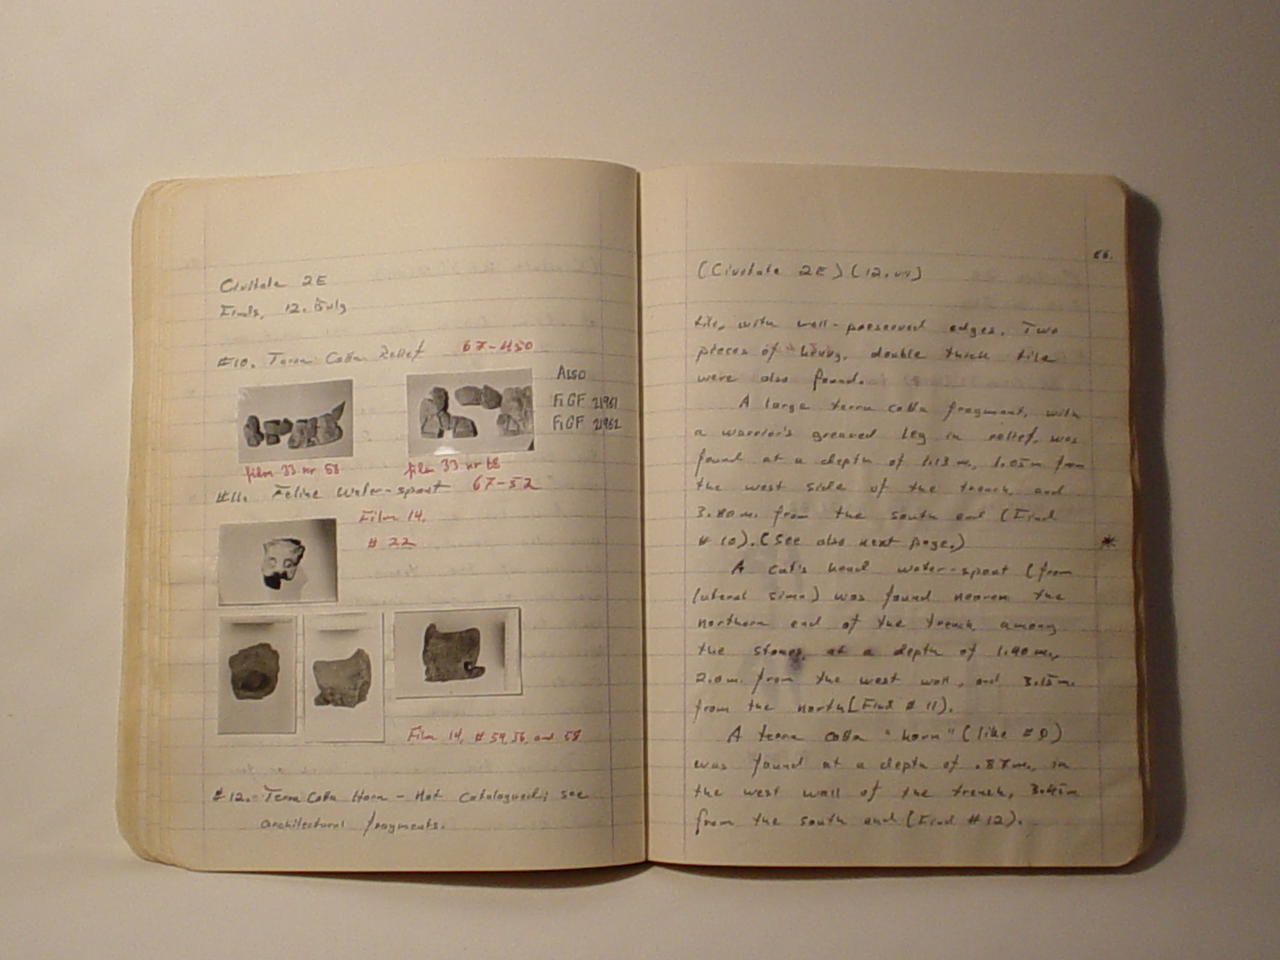 Civitate 2E
Finds, 12. July
#10. Terra Cotta Relief 67-450
ALSO
FiGF 21961
FiGF 21962
film 33 nr 58 film 33 nr 68
#11. Feline Water-spout 67-52
Film 14,
# 22
Film 14, # 54, 56, and 58
#12. Terra Cotta Horn - Not Catalogued; see
architectural fragments.
66.
(Civitate 2E) (12.VII)
tile, with well-preserved edges. Two
pieces of heavy, double thick tile
were also found.
A large terra cotta fragment, with
a warrior's greaved leg in relief, was
found at a depth of 1.13 m, 1.05m from
the west side of the trench, and
3.80m. from the south end (Find
# 10). (See also next page.) *
A cat's head water-spout (from
lateral sima) was found nearer the
northern end of the trench, among
the stones, at a depth of 1.40 m.,
2.0m. from the west wall, and 3.15m.
from the north (Find # 11).
A terra cotta "horn" (like #9)
was found at a depth of .87m, in
the west wall of the trench, 3.45m
from the south end (Find # 12).